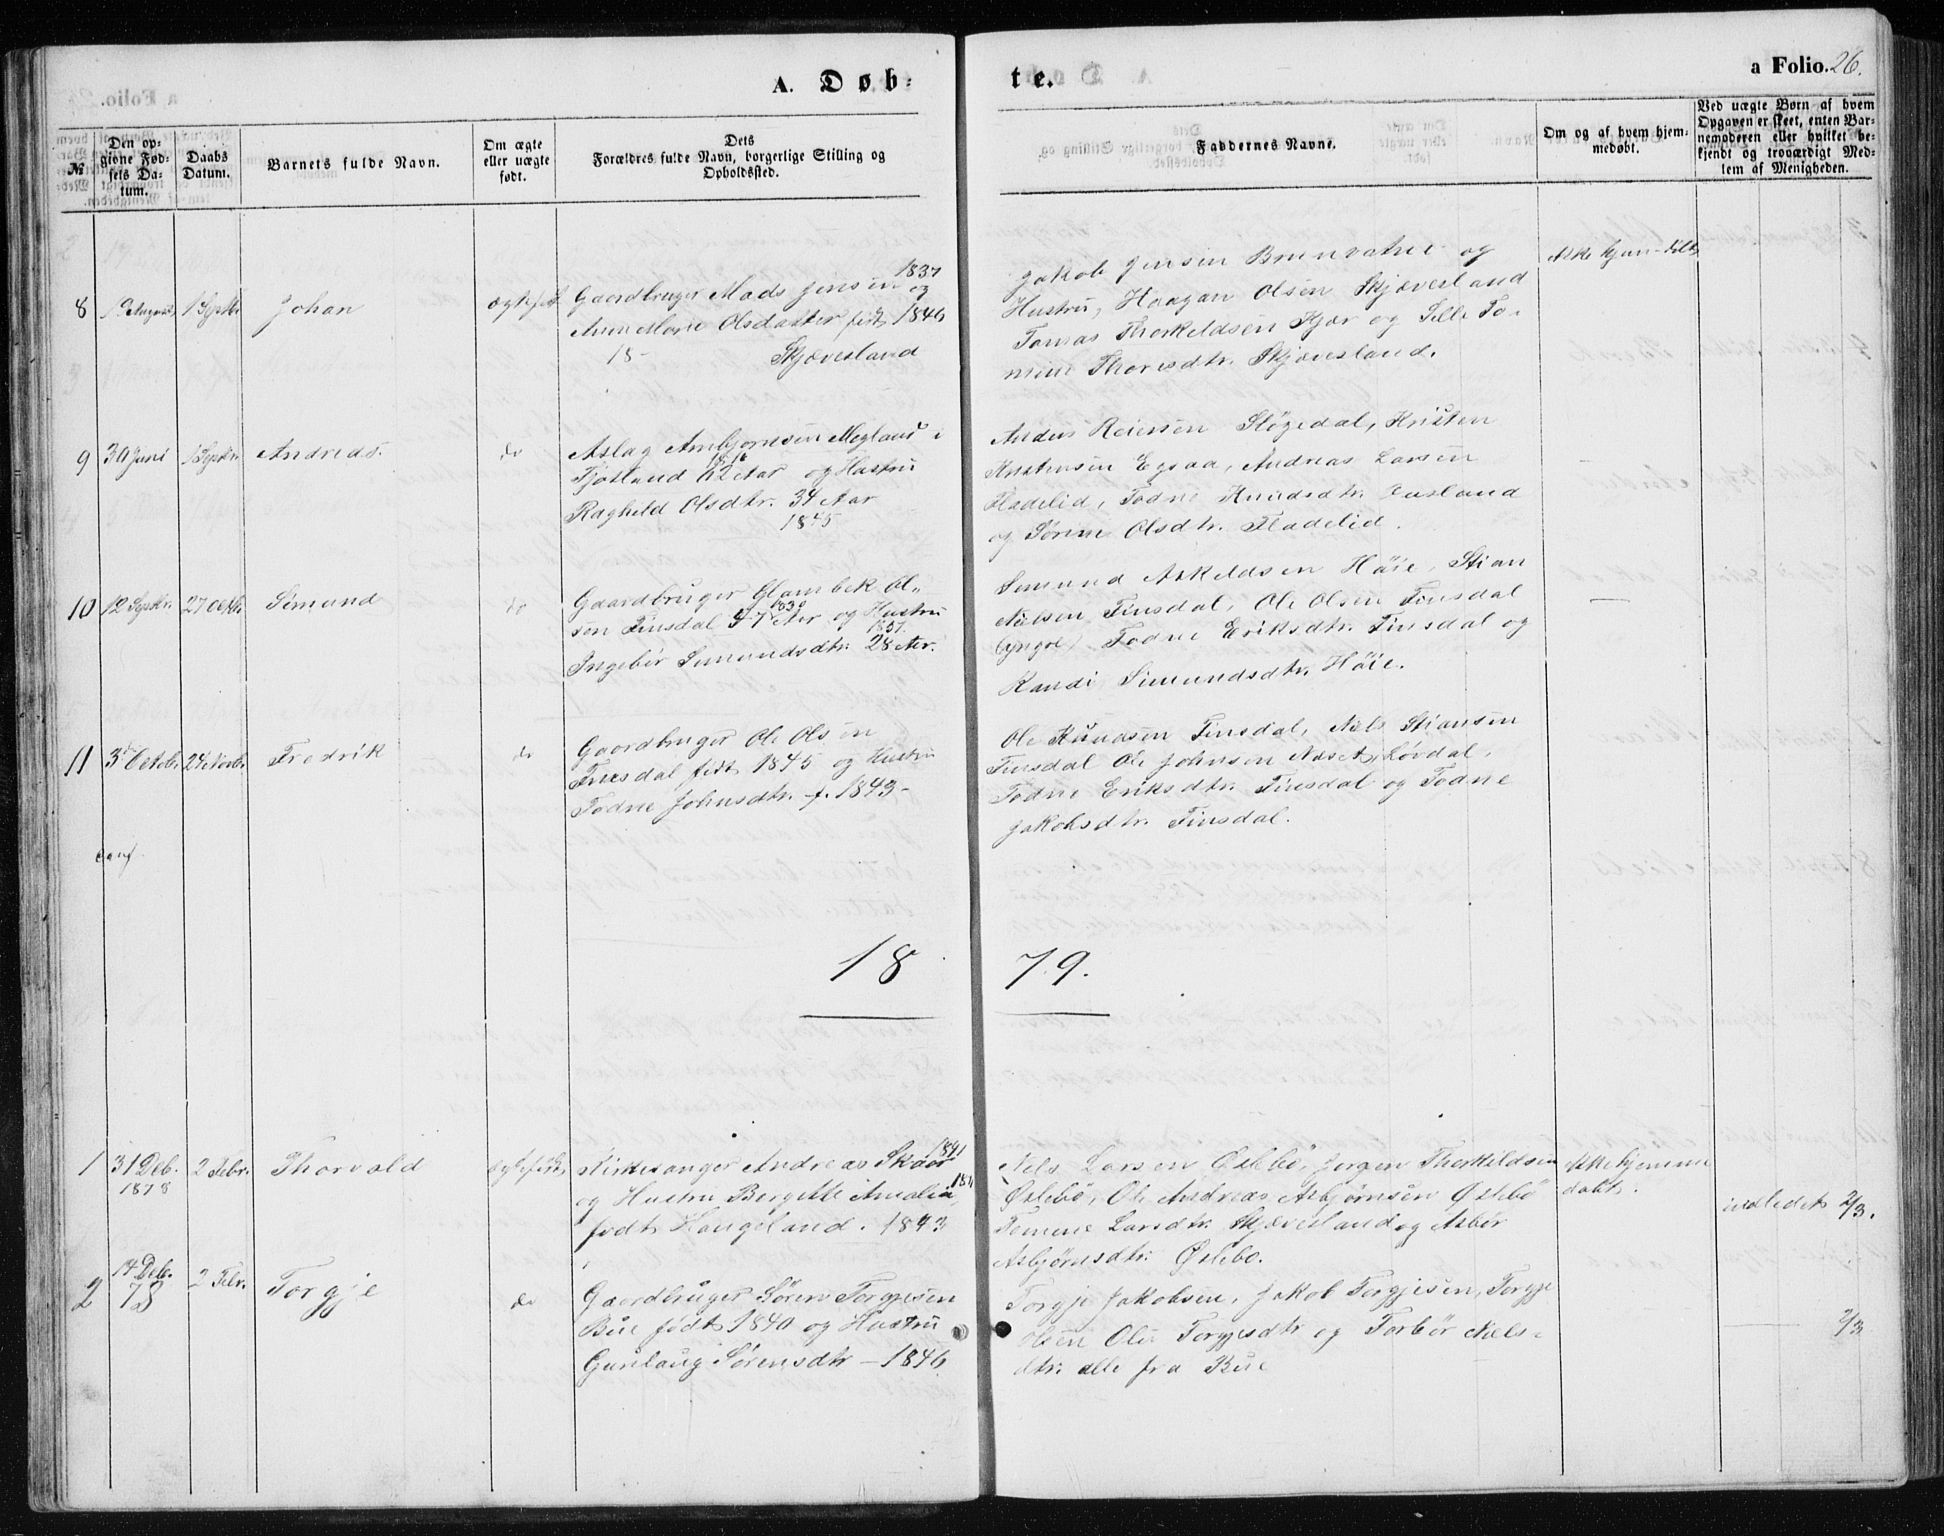 A. Døb-
te.
a Folio. 26.
№
Den op-
givne Fød-
sels Da-
tum.
Daabs
Datum.
Barnets fulde Navn.
Om ægte
eller uægte
født.
Dets
Forældres fulde Navn, borgerlige Stilling og
Opholdssted.
Faddernes Navne.
Om og af hvem hjem-
medøbt.
Ved uægte Børn af hvem
Opgaven er skeet, enten Bar-
nemoderen eller hvilket be-
kjendt og troværdigt Med-
lem af Menigheden.
8
August
Septbr
Johan
ægtefød
1837
Gaardbruger Mads Jensen og
Anne Marie Olsdatter født 1846
18- Skjævesland
Jakob Jensen Brunvatne og
Hustru, Haagan Olsen Skjævesland
Tomas Thorkeldsen Kjær og Sille To-
mine Thoresdtr. Skjævesland.
Ikke hjem-
9
30 Juni
Septbr.
Andreas.
do
Aslag Anbjørnsen Megland i
Fjotland 62 Aar og Hustru
Raghild Olsdtr. 34 Aar
1845
Anders Reiersen Støgedal, Kristen
Kristensen Egsaa, Andreas Larsen
Fladelid, Todne Knudsdtr.
og Sørine Olsdtr. Fladelid.
10
12 Septbr.
27 Octbr.
Simund
do
Gaardbruger Glambek Ol-
sen Finsdal 47 Aar og Hustru
Ingebør Simundsdtr. 28 Aar.
Simund Askeldsen Høie, Stian
Nielsen Finsdal, Ole Olsen Finsdal
(yngre) Todne Eriksdtr. Finsdal og
Randi Simundsdtr. Høie.
—
11
3 Octob.
24 Novb.
Fredrik
do
Gaardbruger Ole Olsen
Finsdal født 1845 og Hustru
Todne Johnsdtr. f. 1843-
Ole Knudsen Finsdal, Niels Stiansen
Finsdal Ole Johnsen Næset, Løvdal,
Todne Eriksdtr. Finsdal og Todne
Jakobsdtr. Finsdal.
18 79.
1
31 Deb.
1878
2 Febr.
Thorvald
ægtefødt
1841
Kirkesanger Andreas Skaar
og Hustru Bergitte Amalia
født Haugeland. 1843
Nels Larsen Øslebø, Jørgen Thorkildsen
Øslebø, Ole Andreas Asbjørnsen Øslebø
Temine Larsdtr. Skjævesland og Asbør
Asbjørnsdtr. Øslebo.
Ikke hjemme
døbt.
indledet 2/3.
2
14 Deb.
78
2 Febr.
Torgje
do
Gaardbruger Søren Torgjesen
Bue født 1840 og Hustru
Gunlaug Sørensdtr — 1846
Torgje Jakobsen, Jakob Torgjesen, Torgje
Olsen Ole Torgjesdtr og Torbør Niels-
dtr. alle fra Bue
2/3